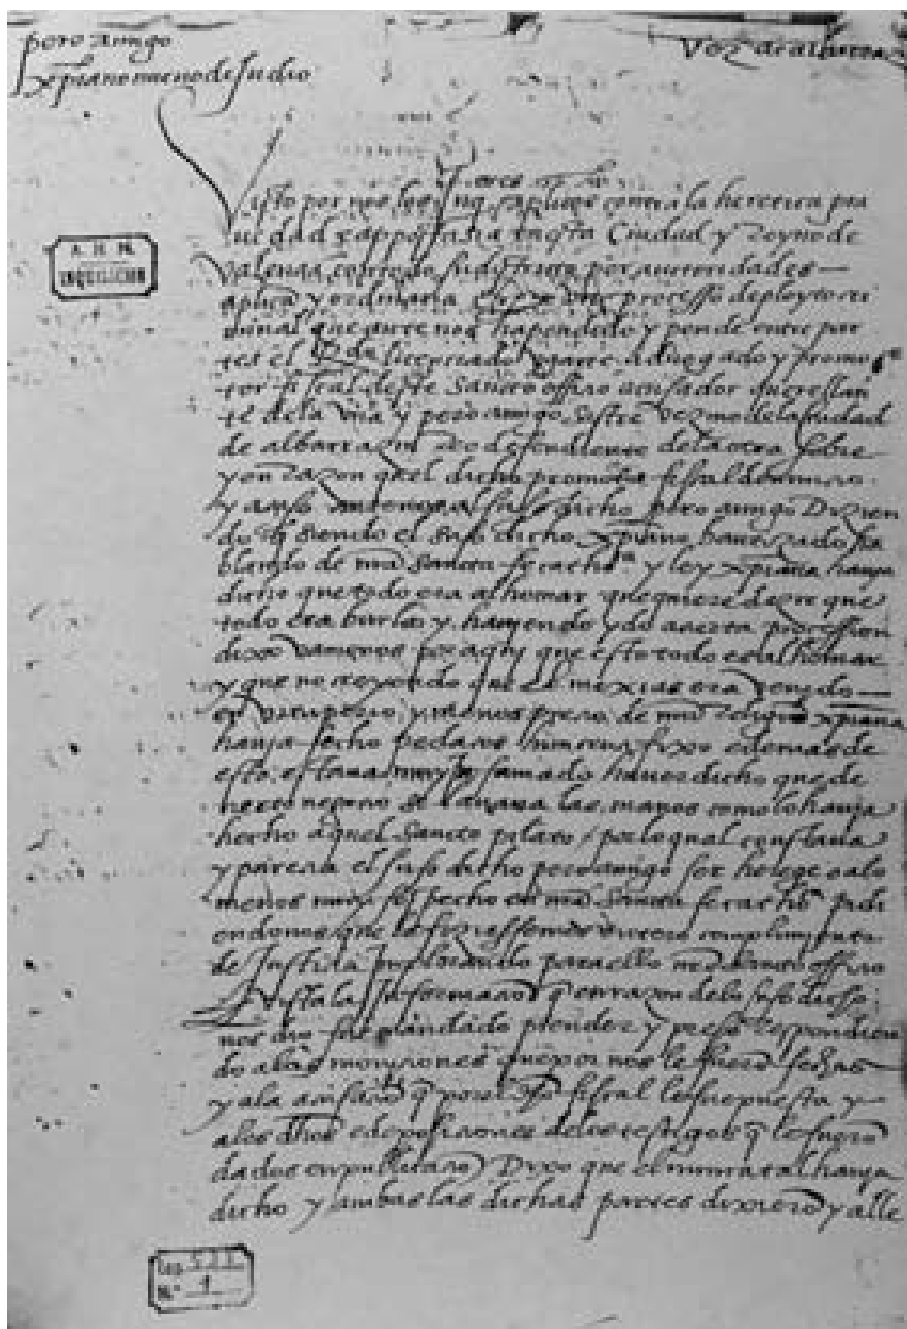 pero amigo
xpiano nueno de Judio
A. H. N.
INQUISICION
Visto por nos los Inq apticos contra la heretica pra
uidad y appostasia en esta Ciudad y Reyno de
Valencia con todo su districto por auctoridades
aptica y ordinaria processo de pleyto cri
minal que ante nos ha pendido y pende entre par
tes el licenciado aduogado y promo
tor fiscal deste Sancto officio acusador querellan
te de la vna y pero amigo Sastre vezino de la ciudad
de albarrazin reo defendiente de la otra sobre
y en razon quel dicho promotor fiscal denuncio
y acuso ante nos al suso dicho pero amigo Dizien
do q siendo el suso dicho xpiano bauptizado ha
blando de nra Sancta fe catho.ca y ley xpiana hauia
dicho que todo era alhomar que quiere dezir que
todo era burla y haziendo se cierta procession
dixo vamonos por aqui que esto todo es alhomar
y que no creyendo que el mexias era venido
en vituperio y menosprecio de nra religion xpiana
hauia fecho pedaços fixo e demas de
esto estaua infamado hauer dicho que de
se lauaua las manos como lo hauia
hecho aquel Sancto pilato / por lo qual constaua
y parecia el suso dicho pero amigo ser herege o alo
menos muy sospechoso en nra Sancta fe catho.ca pidi
endonos que le fiziessemos entero complimiento
de Justicia implorando para ello nro sancto officio
E vista la Informacio q en razon de lo suso dicho
nos dio fue mandado prender y preso respondien
do alas moniciones que por nos le fuero fechas
y ala acusacio q por el dho fiscal le fue puesta y
alos dhos e deposiciones de los testigos q le fuero
dados en publicacio Dixo que el nunca tal hauia
dicho y ambas las dichas partes dixero y alle
Leg. 531
N.º 1